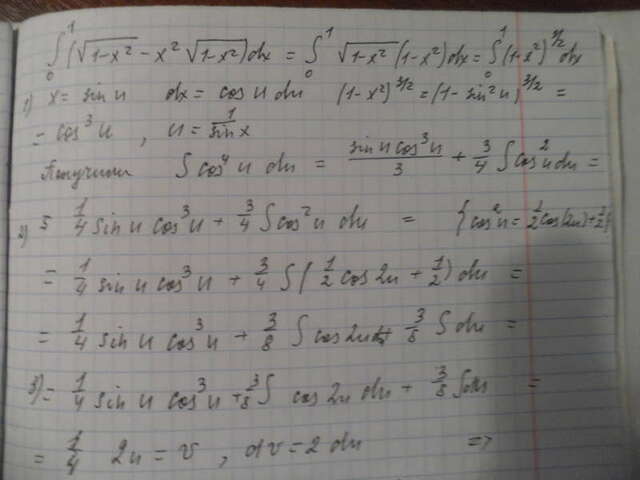 ∫₀¹ (√(1-x²) - x² √(1-x²)) dx = ∫₀¹ √(1-x²) (1-x²) dx = ∫₀¹ (1-x²)^{3/2} dx
1) x = sin u dx = cos u du (1-x²)^{3/2} = (1-sin² u)^{3/2} =
= cos³ u , u = 1/sin x
Получим ∫ cos⁴ u du = sin u cos³ u / 3 + 3/4 ∫ cos² u du =
2) 1/4 sin u cos³ u + 3/4 ∫ cos² u du = {cos² u = 1/2 cos(2u) + 1/2}
= 1/4 sin u cos³ u + 3/4 ∫ (1/2 cos 2u + 1/2) du =
= 1/4 sin u cos³ u + 3/8 ∫ cos 2u du + 3/8 ∫ du =
3) = 1/4 sin u cos³ u + 3/8 ∫ cos 2u du + 3/8 ∫ du =
= 1/4 2u = v , dv = 2 du =>